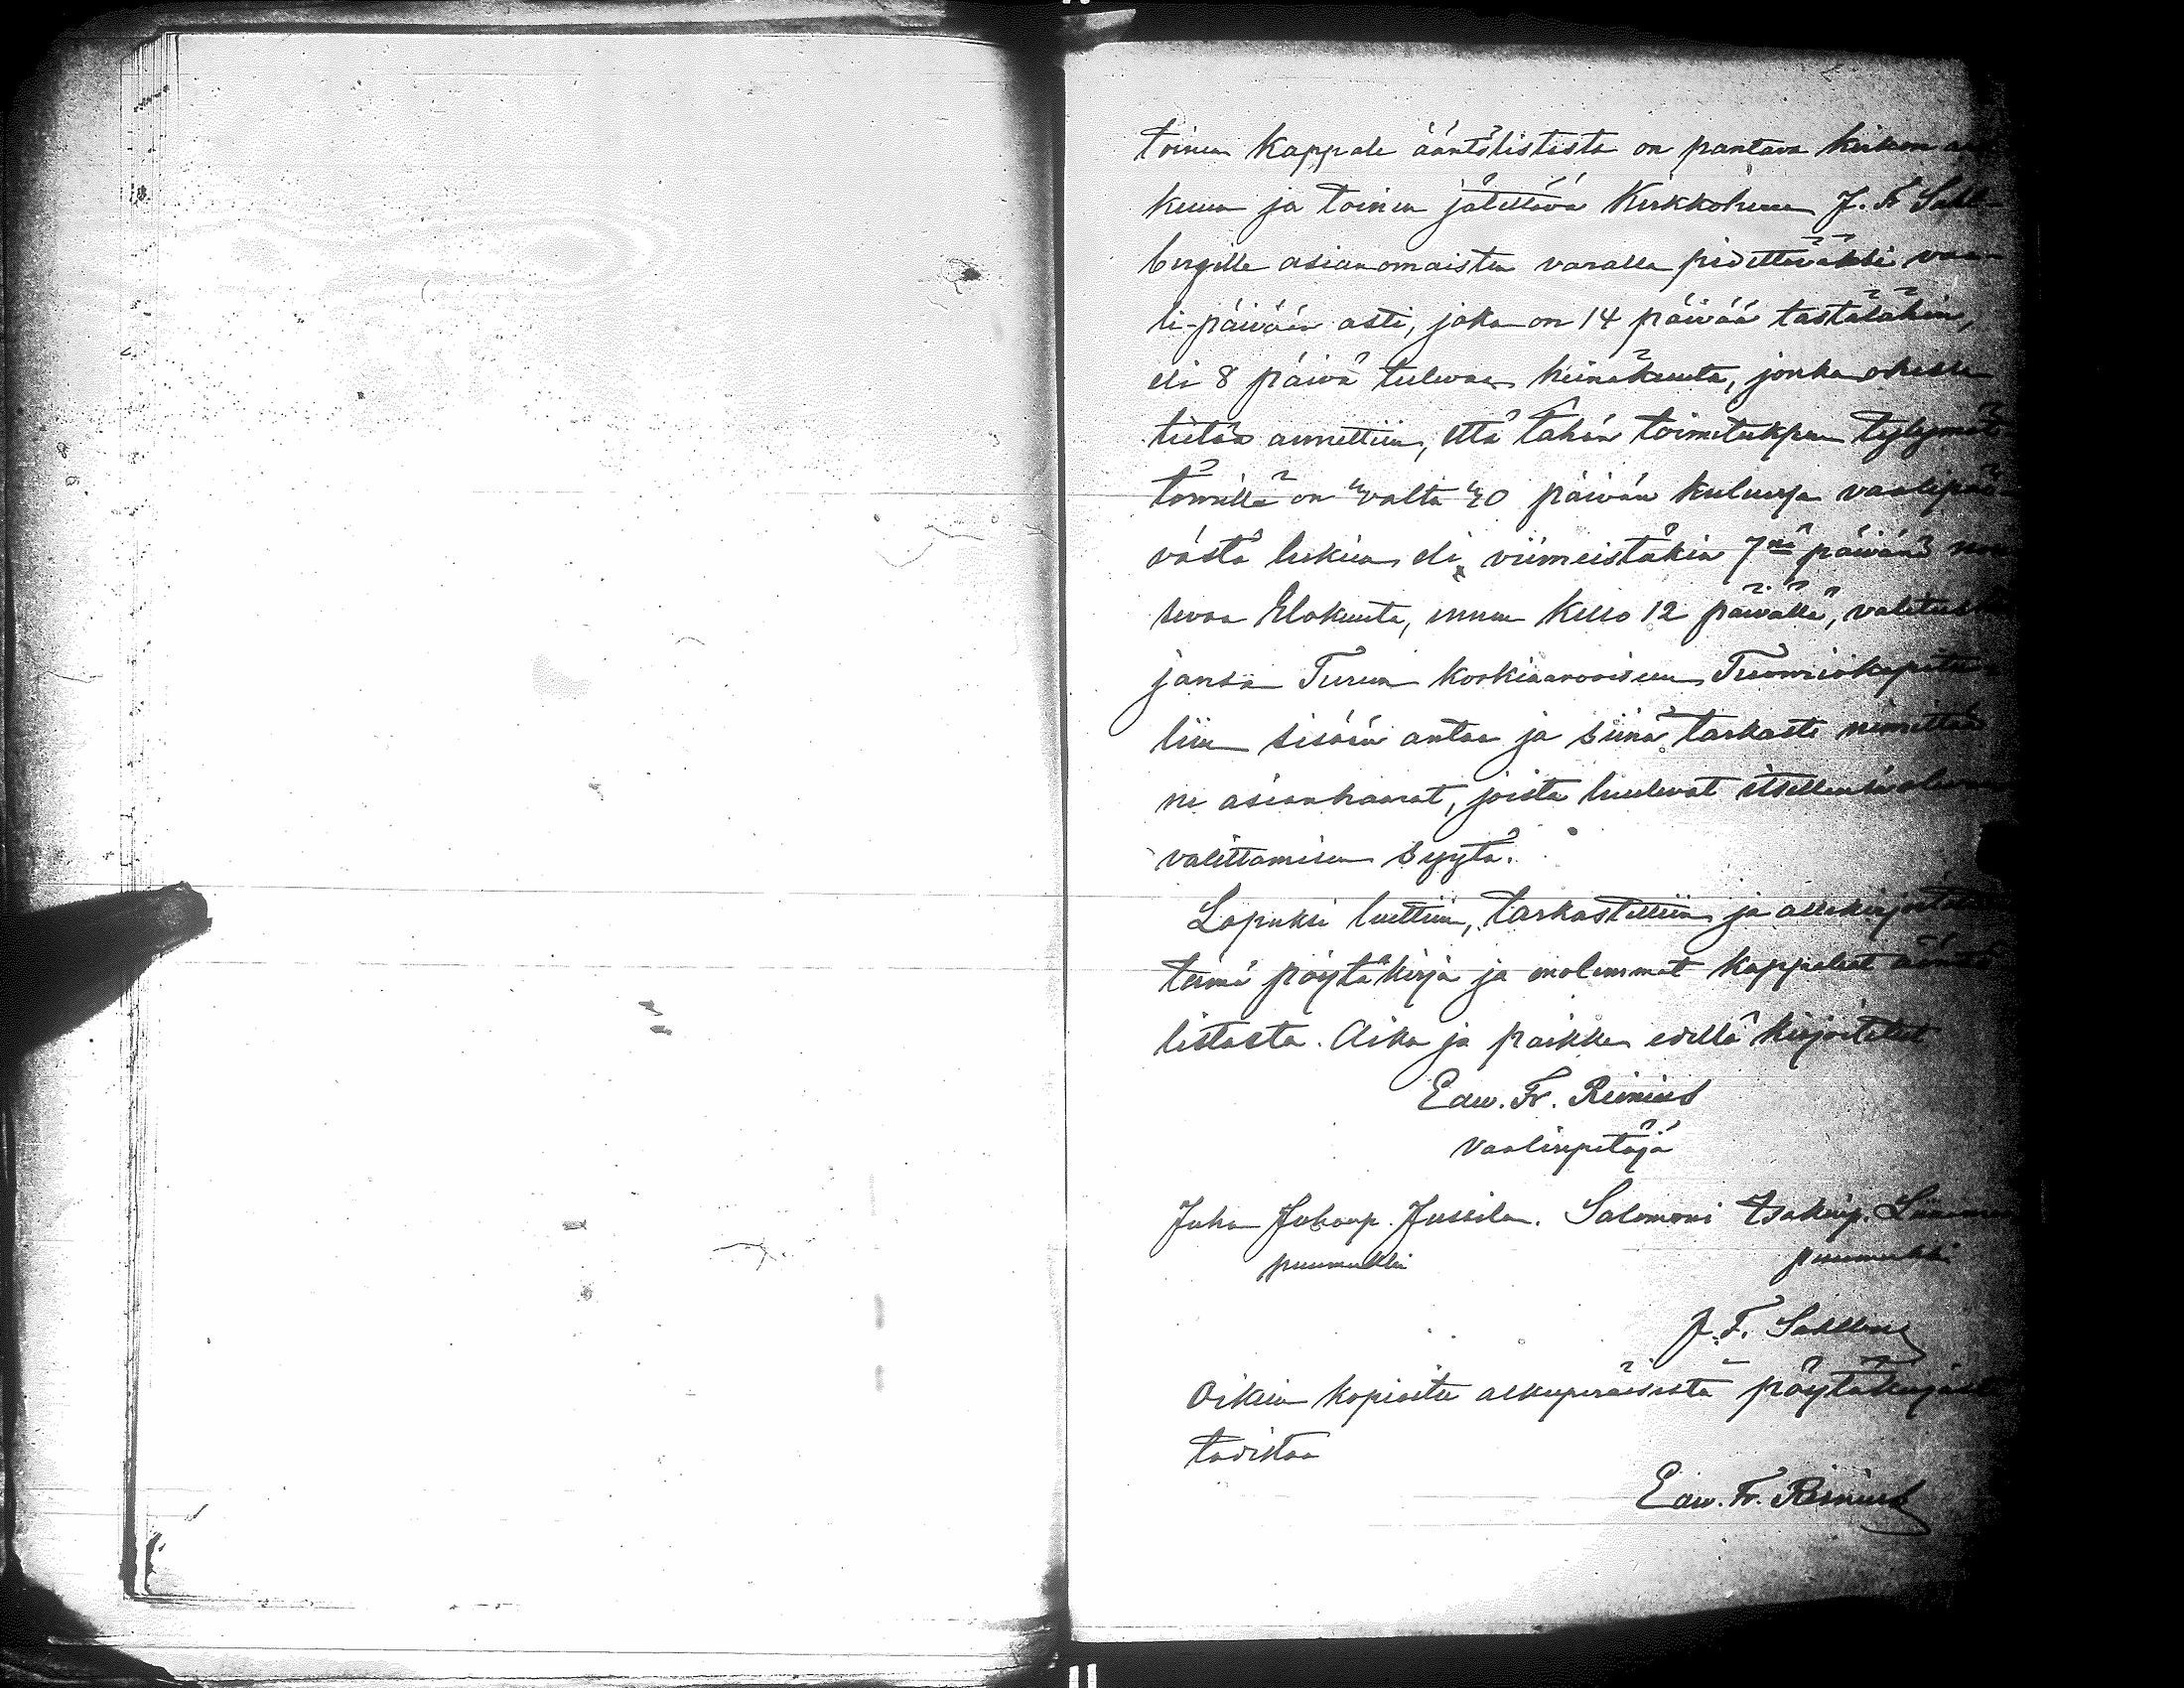 toinen kappale ääntölististä on pantava kirkon ark
kuun ja toinen jätettävä Kirkkoherra J. F. Sahl-
bergille asianomaisten varalla pidettäväksi vaa-
li-päivään asti, joka on 14 päivää tästälähin,
eli 8 päivä tulevaa heinäkuuta, jonka ohessa
tietää annettiin, että tähän toimitukseen tytymät-
tömillä on valta 30 päivän kuluessa vaalipäi-
västä lukien eli viimeistäkin 7nä päivänä
sevaa Elokuuta, ennen kello 12 päivällä, valituk
jansa Turun korkiaarvoiseen Tuomiokapitu-
liin sisään antaa ja siinä tarkasti nimittää
ne asianhaarat, joista luulevat itsellensä olevan
valittamisen syytä.
Lopuksi luettiin, tarkastettiin ja allekirjoitet
tämä pöytäkirja ja molemmat kappaleet ääntö
listasta. Aika ja paikka edellä kirjoitetut
Edw. Fr. Reinius
vaalinpitäjä
Juha Juhanp. Jussila. Salomoni Isakinp.
puumerkki puumerkki
J. F. Sahlberg
Oikein kopioitu alkuperäisestä pöytäkirjast
todistaa
Edw. Fr. Reinius